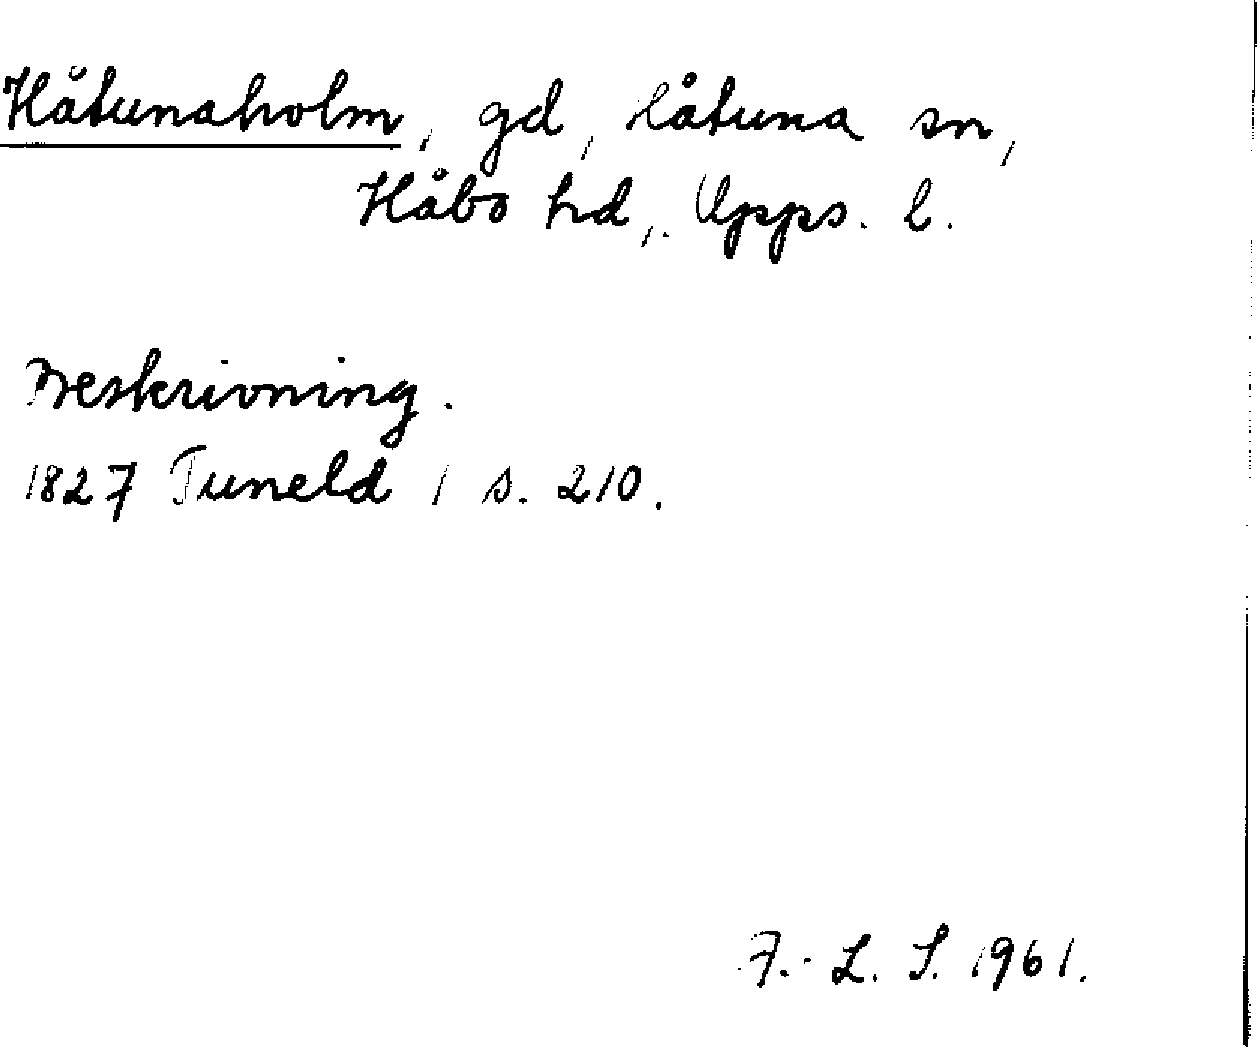 Håtunaholm, gd, Håtuna sn,
Håbo hd, Upps. l.
Beskrivning.
1827 Tuneld 1 s. 210.
F. L. S. 1961.